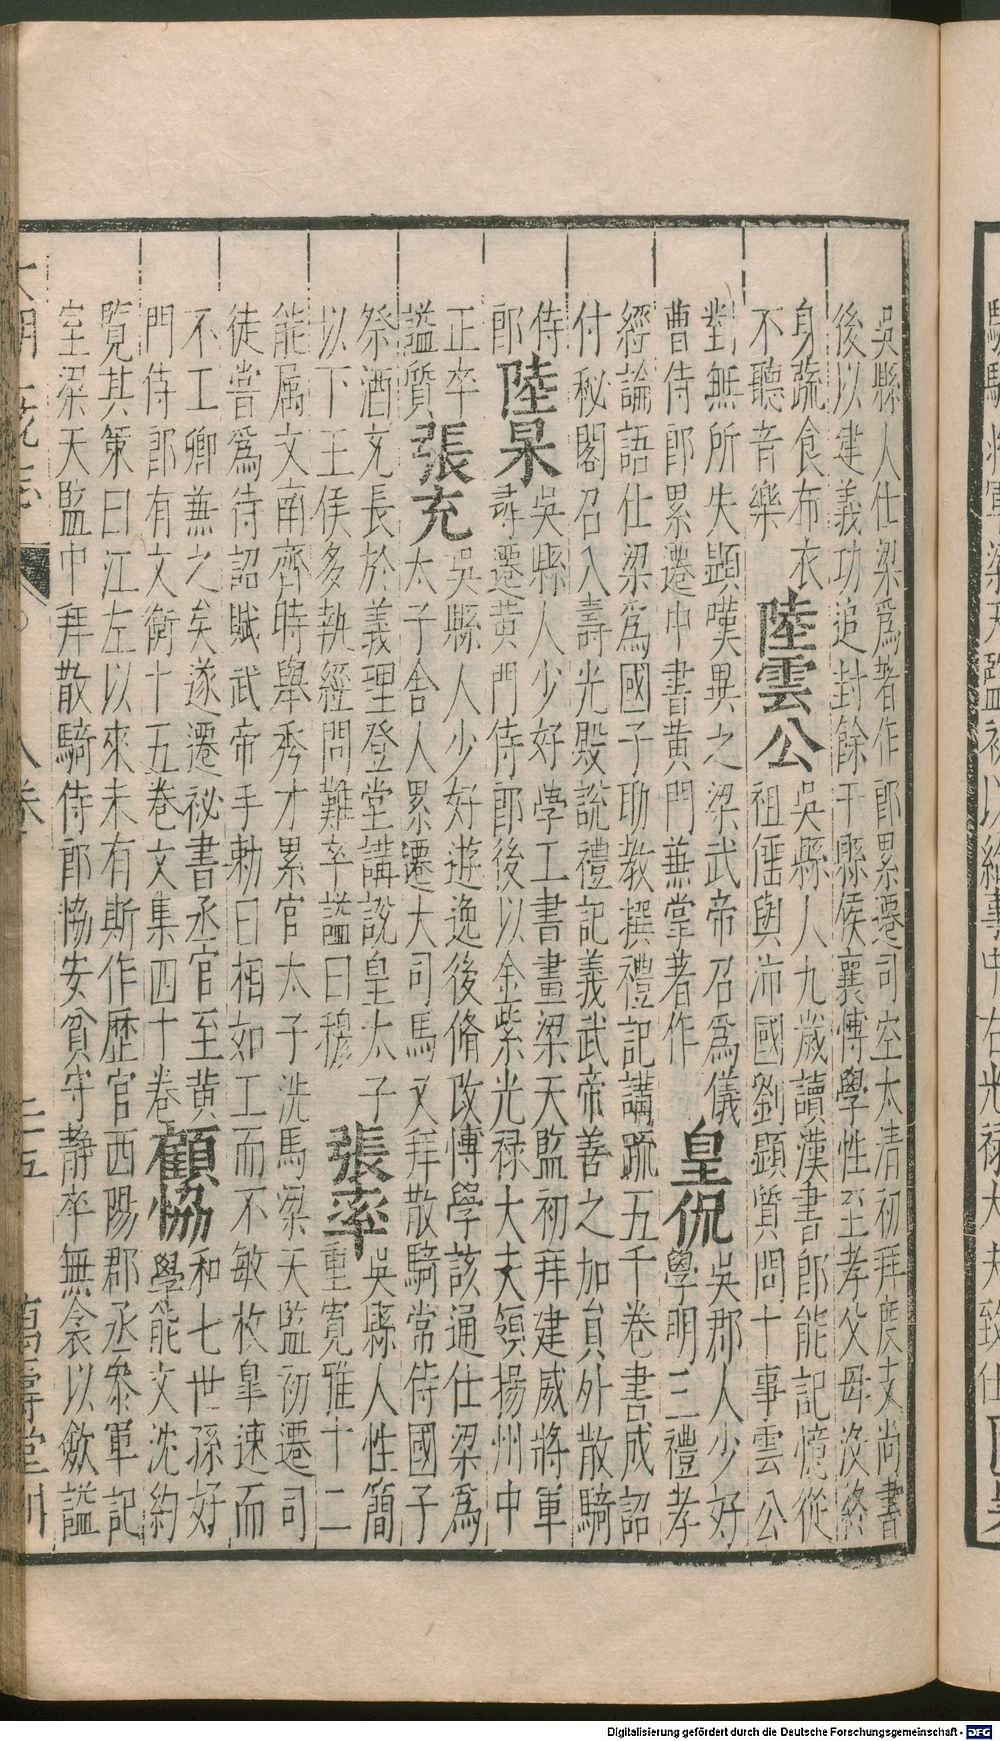 吳縣人仕梁爲著作郎累遷司空太清初拜度支尚書
後以建義功追封餘干縣侯襄愽學性至孝父母沒終
身蔬食布衣
不聽音樂
陸雲公
吳縣人九歲讀漢書郎能記憶從
祖倕與沛國劉顯質問十事雲公
對無所失顕嘆異之梁武帝召爲儀
曹侍郎累遷中書黄門蒹堂著作
皇侃
吳郡人少好
學明三禮孝
經論語仕梁爲國子助教撰禮記講疏五千卷書成詔
付秘閣召入壽光殿說禮記義武帝善之加負外散騎
侍
郎
陸杲
吳縣人少好學工書畫梁天監初拜建威將軍
尋遷黄門侍郎後以金紫光禄大夫領揚州中
正卒
謚質
張充
吳縣人少好遊逸後脩改愽學該通仕梁爲
太子舍人累遷大司馬又拜散騎常侍國子
祭酒充長於義理登堂講說皇太子
以下王侯多執經問難卒謚曰穆
張率
吳縣人性簡
重寛雅十二
能属文南齊時舉秀才累官太子洗馬梁天監初遷司
徒嘗爲待詔賦武帝手勅曰相如工而不敏枚皐速而
不工卿蒹之矣遂遷祕書丞官至黄
門侍郎有文衡十五卷文集四十卷
顧協
和七世孫好
學能文沈約
覧其策曰江左以來未有斯作歴官西陽郡丞叅軍記
室梁天監中拜散騎侍郎恊安貧守靜卒無衾以歛謚
卷
二五
萬壽堂刊
Digitalisierung gefördert durch die Deutsche Forschungsgemeinschaft - DFG